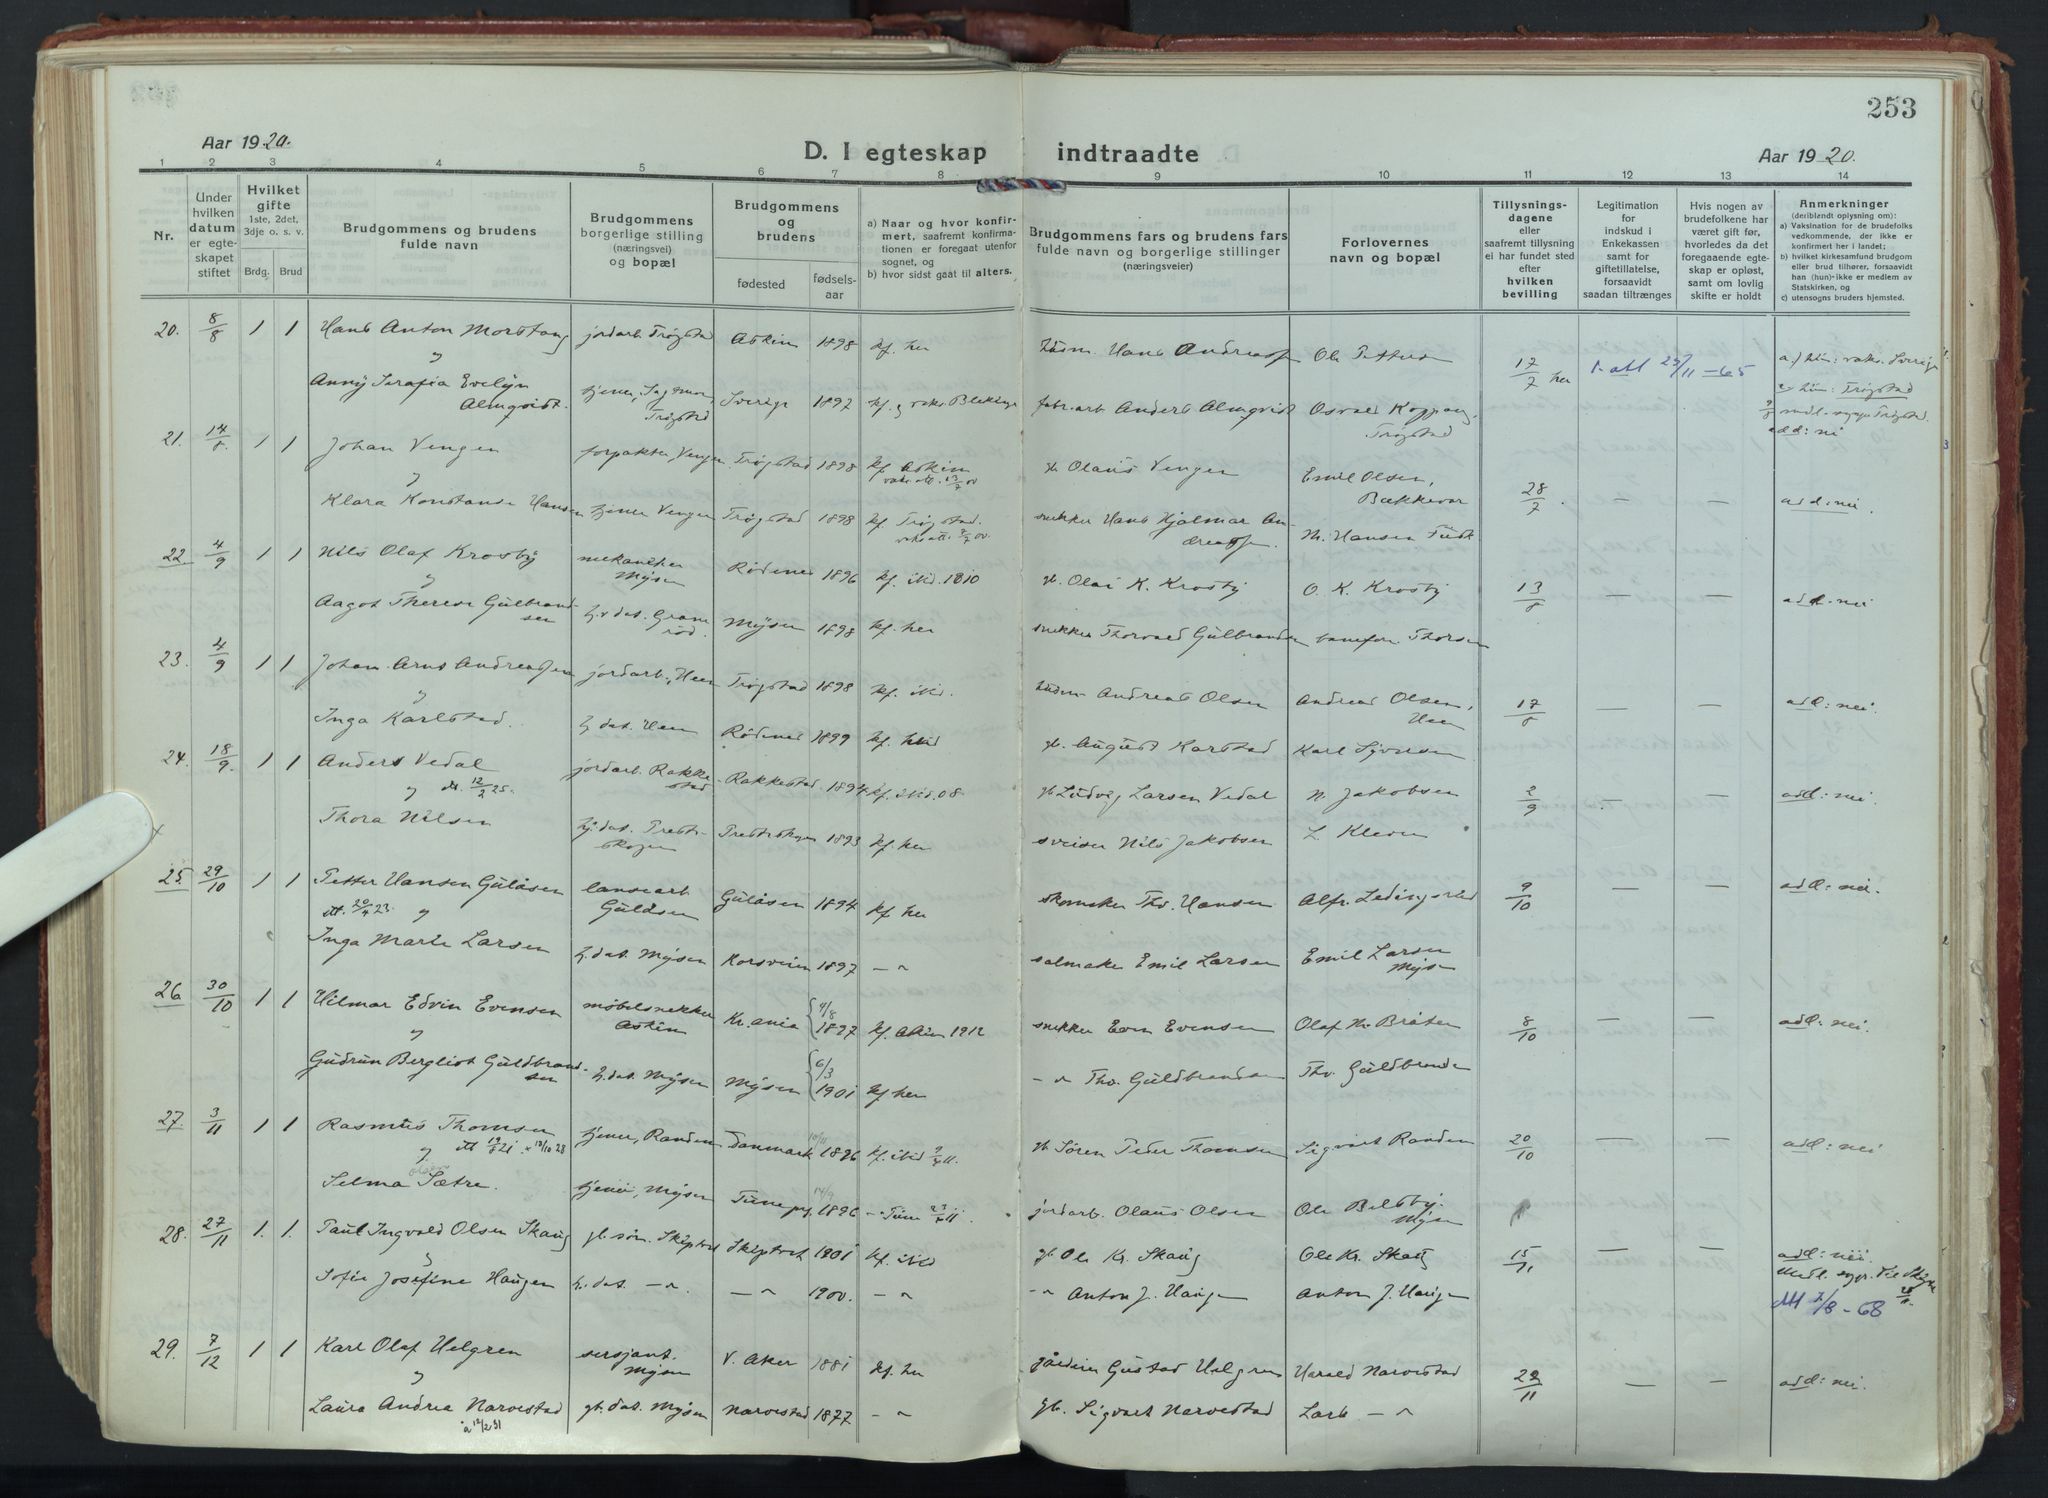 253
Aar 1920.
D. I egteskap indtraadte
Aar 1920.
1 2 3 4 5 6 7 8 9 10 11 12 13 14
Nr.
Under hvilken datum er egteskapet stiftet
Hvilket gifte 1ste, 2det, 3dje o. s. v.
Brdg. Brud
Brudgommens og brudens fulde navn
Brudgommens borgerlige stilling (næringsvei) og bopæl
Brudgommens og brudens
fødested fødselsaar
a) Naar og hvor konfirmert, saafremt konfirmationen er foregaat utenfor sognet, og
b) hvor sidst gaat til alters.
Brudgommens fars og brudens fars fulde navn og borgerlige stillinger (næringsveier)
Forlovernes navn og bopæl
Tillysningsdagene eller saafremt tillysning ei har fundet sted efter hvilken bevilling
Legitimation for indskud i Enkekassen samt for giftetillatelse, forsaavidt saadan tiltrænges
Hvis nogen av brudefolkene har været gift før, hvorledes da det foregaaende egteskap er opløst, samt om lovlig skifte er holdt
Anmerkninger (deriblandt oplysning om):
a) Vaksination for de brudefolks vedkommende, der ikke er konfirmert her i landet;
b) hvilket kirkesamfund brudgom eller brud tilhører, forsaavidt han (hun) ikke er medlem av Statskirken, og
c) utensogns bruders hjemsted.
20. 8/8 1 1 Hans Anton Morstong jordarb. Trøgstad Askim 1898 kf. her husm. Hans Andreass Ole Pettersen 17/7 her 23/11-65
Anny Serafia Evelyn Almqvist. tjener, Trøgstad Sverige 1897 kf. og vaks. Blekinge fabr.arb. Anders Almqvist Osvald Koppang, Trøgstad
21. 14/8. 1 1 Johan Vengen forpakter, Vengen Trøgstad 1898 kf. Askim gb. Olaus Vengen Emil Olsen, Bækkevar 28/7. — — add: nei.
Klara Konstanse Hansen tjener Vengen Trøgstad 1898 kf. Trøgstad. snekker Hans Hjalmar Andreassen. M. Hansen
22. 4/9 1 1 Nils Olaf Krosby mekaniker Mysen Rødenes 1896 kf. ibid. 1810 gb. Olai K. Krosby O. K. Krosby 13/8 — — add: nei
Aagot Therese Gulbrandsen h.v. dat. Gramrød. Mysen 1898 kf. her snekker Thorvald Gulbrandsen banefm. Thorsen
23. 4/9 1 1 Johan Arns Andreassen jordarb., Heen Trøgstad 1898 kf. ibid. husm. Andreas Olsen Andreas Olsen, Heen 17/8 — — add: nei.
Inga Karlstad. h. dat. Heen Rødenes 1899 kf. ibid gb. August Karstad Karl Syversen
24. 18/9. 1 1 Anders Vedal jordarb. Rakkestad Rakkestad 1894 kf. ibid. 08 gb. Ludvig Larsen Vedal N. Jakobsen 2/9 — — add: nei.
og dt. 12/2 25.
x Thora Nilsen hj. dat. Prestskogen Prestskogen 1893 kf. her sveiser Nils Jakobsen L. Kleven
25. 29/10 1 1 Petter Hansen Gulåsen lausearb Gulåsen Gulåsen 1894 kf. her skomaker Thv. Hansen Alfr. Ledingsrud 9/10 — — add: nei.
dt. 20/4 23. og
Inga Marie Larsen h. dat. Mysen Korsveien 1897 —"— salmaker Emil Larsen Emil Larsen Mysen
26. 30/10 1 1 Hilmar Edvin Evensen møbelsnekker Askim Kr.ania 4/8 1897 kf. Askim 1912 snekker Even Evensen Olaf M. Bråten 8/10 — — add: nei.
Gudrun Bergliot Guldbrandsen h. dat. Mysen Mysen 6/3 1901 kf her —"— Thv. Guldbrandsen Thv. Guldbrandsen
27. 3/11 1 1 Rasmus Thomsen tjener, Randem Danmark 1896 kf. ibid gb. Søren Peder Thomsen Sigvart Randem 20/10 — — add: nei
og
Selma Sætre. tjener, Mysen Tune 14/9 1896 —" Tune jordarb. Olaus Olsen Ole Bilsby, Mysen
28. 27/11 1. 1. Paul Ingvald Olsen Skaug gb. søn. Skiptvet Skiptvet 1901 kf. ibid gb. Ole Kr. Skaug Ole Kr. Skaug 15/11 — — add: nei.
Sofie Josefine Haugen h. dat. —"—. —"— 1900. —"— —"— Anton J. Haugen Anton J. Haugen
7/8-68
29. 7/12 1 1 Karl Olaf Helgren sersjant. Mysen V. Aker 1881 kf. her gårdeier Gustad Helgren Harald Narvestad 22/11 — — add: nei.
Laura Andrea Narvestad gb. dat. Mysen Narvestad 1877 —"— gb. Sigvart Narvestad Lars —"—